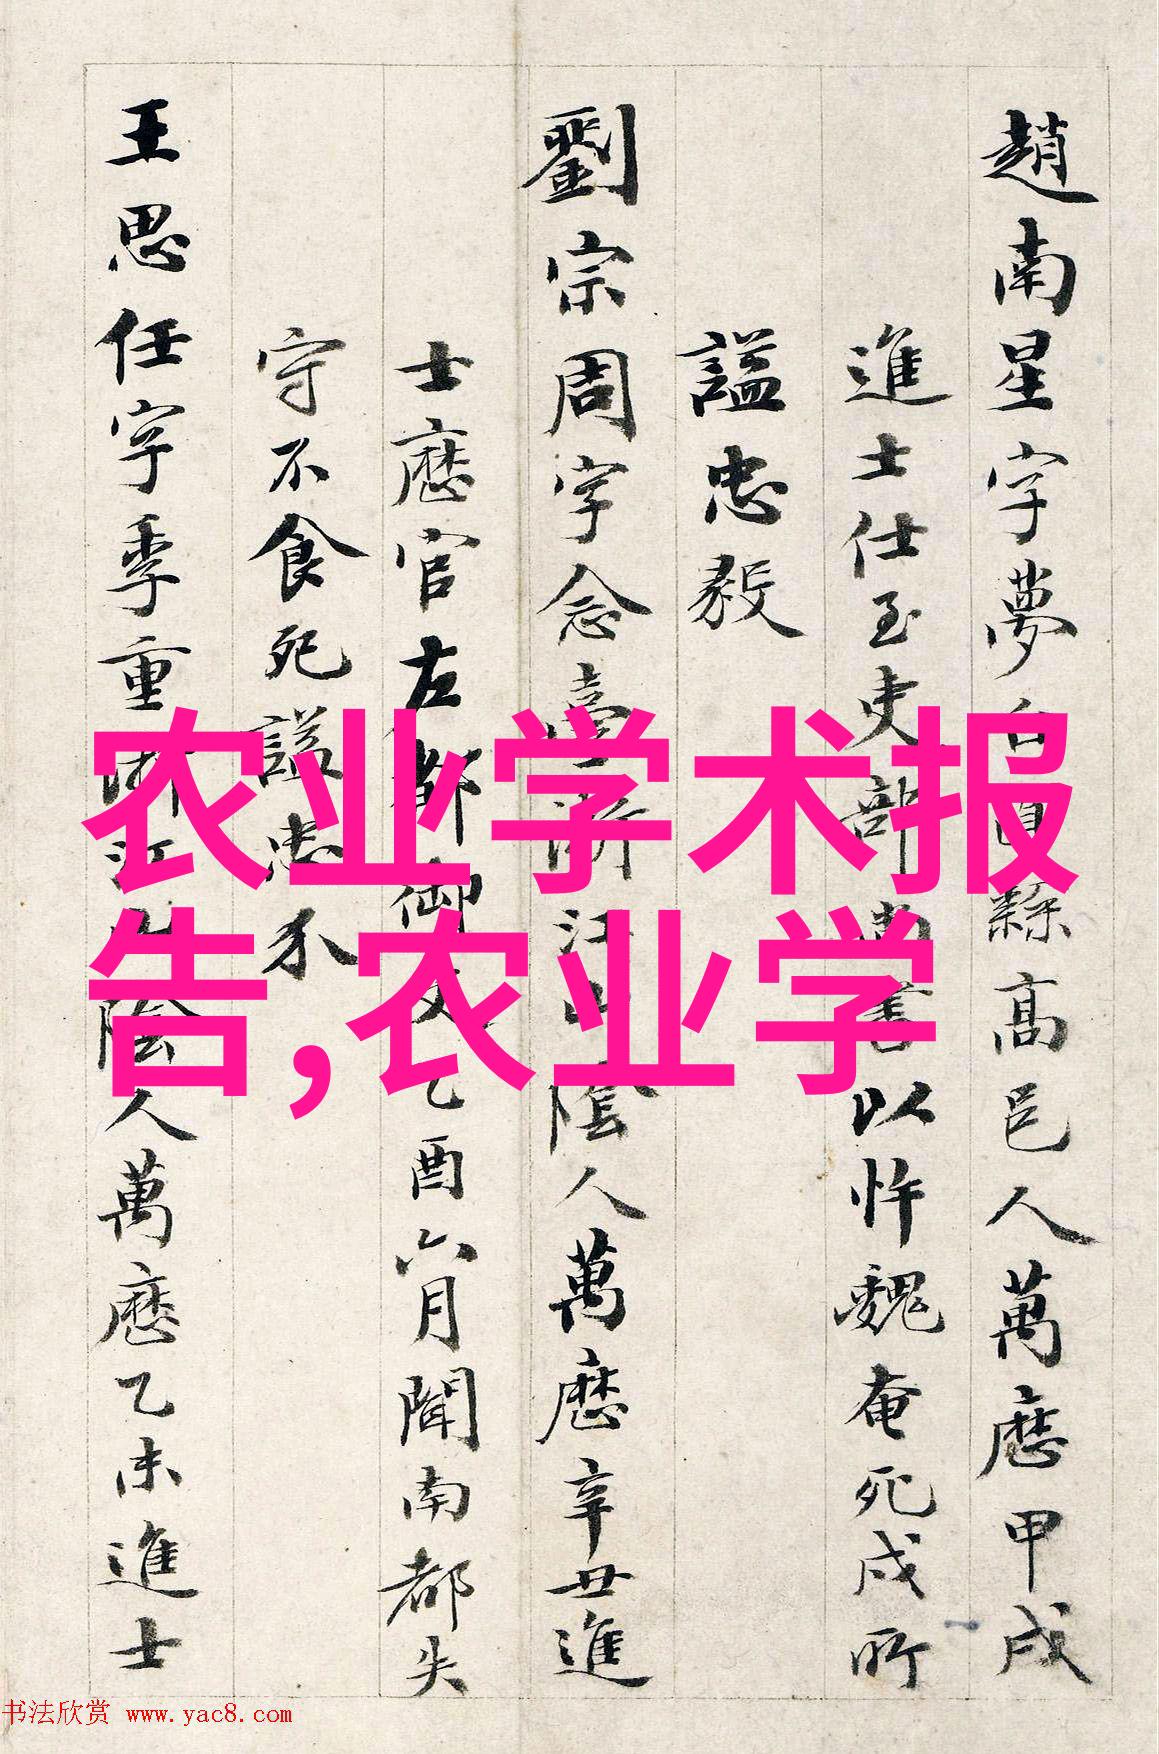 趙南星字夢白直隸高邑人萬曆甲戌
進士仕至吏部尚書以忤魏奄死戍所
諡忠毅
劉宗周字念臺浙江山陰人萬曆辛丑進
士歷官左都御史乙酉六月聞南都失
守不食死諡忠介
王思任字季重浙江山陰人萬曆乙未進士
农业学术报
告,农业学
书法欣赏 www.yac8.com